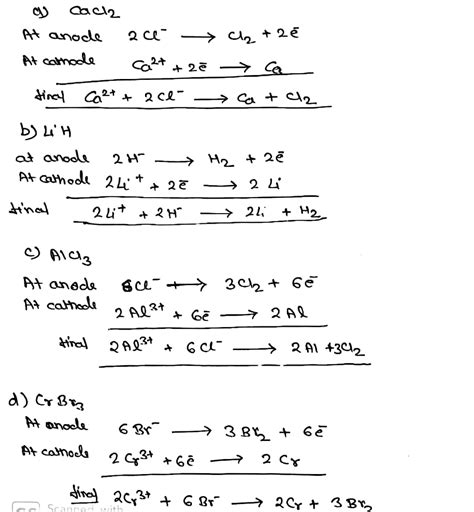 a) CaCl2
At anode 2Cl⁻ → Cl2 + 2ē
At cathode Ca²⁺ + 2ē → Ca
final Ca²⁺ + 2Cl⁻ → Ca + Cl2
b) LiH
at anode 2H⁻ → H2 + 2ē
At cathode 2Li⁺ + 2ē → 2Li
final 2Li⁺ + 2H⁻ → 2Li + H2
c) AlCl3
At anode 6Cl⁻ → 3Cl2 + 6ē
At cathode 2Al³⁺ + 6ē → 2Al
final 2Al³⁺ + 6Cl⁻ → 2Al + 3Cl2
d) CrBr3
At anode 6Br⁻ → 3Br2 + 6ē
At cathode 2Cr³⁺ + 6ē → 2Cr
final 2Cr³⁺ + 6Br⁻ → 2Cr + 3Br2
Scanned with